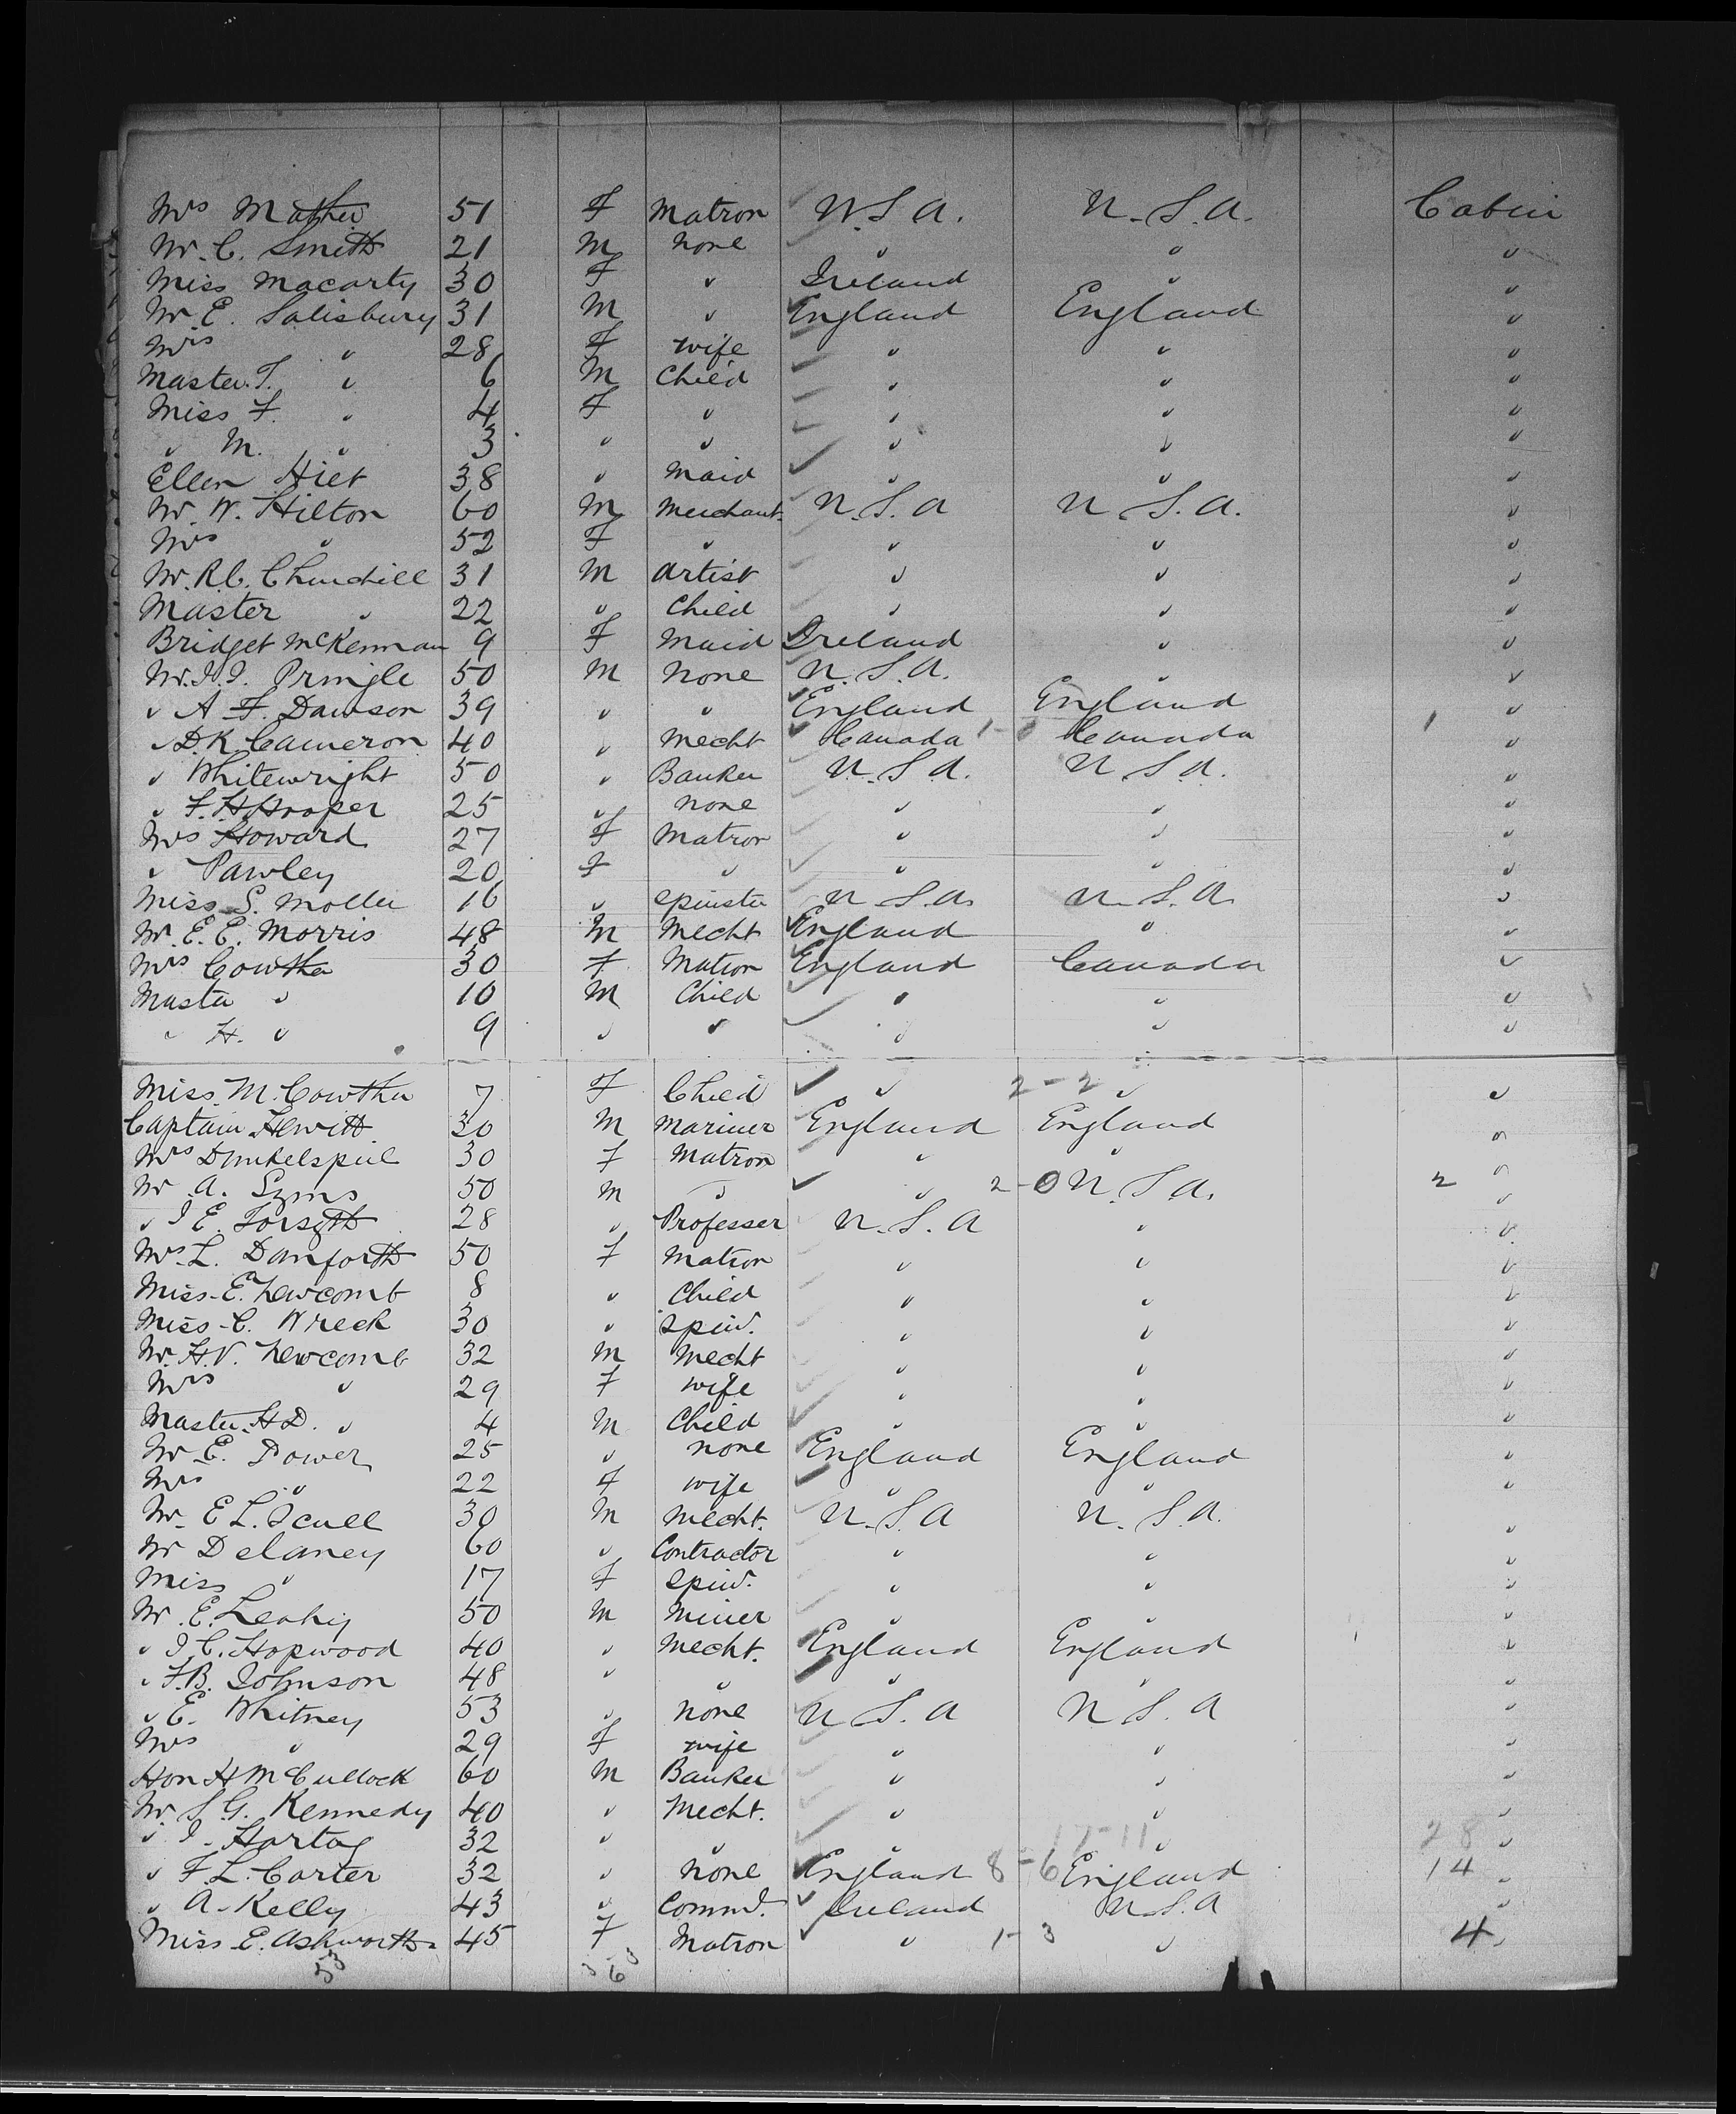 Mrs Mather 51 F Matron U.S.A. U.S.A. Cabin
Mr. C. Smith 21 M None " " "
Miss Macarty 30 F " Ireland " "
Mr. E. Salisbury 31 M " England England "
Mrs " 28 F wife " " "
Master. T. " 6 M Child " " "
Miss F. " 4 F " " " "
" M. " 3 " " " " "
Ellen Hiet 38 " Maid " " "
Mr. W. Hilton 60 M Merchant. U.S.A U.S.A. "
Mrs " 52 F " " " "
Mr. R.C. Churchill 31 M Artist " " "
Master " 22 " Child " " "
Bridget McKennan 9 F Maid Ireland " "
Mr. J.J. Pringle 50 M None U.S.A. " "
" A F. Dawson 39 " " England England 1 "
" D.K. Cameron 40 " Mecht Canada 1-0 Canada "
" Whitewright 50 " Banker U.S.A. U.S.A. "
" F.H. Hooper 25 " None " " "
Mrs Howard 27 F Matron " " "
" Pawley 20 F " " " "
Miss S. Moller 16 " Spinster U.S.A. U.S.A. "
Mr. E.E. Morris 48 M Mecht England " "
Mrs Cowther 30 F Matron England Canada "
Master " 10 M Child " " "
" H. " 9 " " " " "
Miss. M. Cowther 7 F Child " 2-2 " "
Captain Hewitt 30 M Mariner England England "
Mrs Dunkelspiel 30 F Matron " " "
Mr. A. Syms 50 M " " 2-0 U.S.A. 2 "
" J E. Forsyth 28 " Professer U.S.A " "
Mrs. L. Danforth 50 F Matron " " "
Miss. E. Newcomb 8 " Child " " "
Miss. C. Wreck 30 " Spins. " " "
Mr. H.V. Newcomb 32 M Mecht " " "
Mrs " 29 F wife " " "
Master. H.D. " 4 M Child " " "
Mr. E. Power 25 " None England England "
Mrs " 22 F wife " " "
Mr. E L. Scull 30 M Mecht. U.S.A U.S.A. "
Mr Delaney 60 " Contractor " " "
Miss " 17 F Spins. " " "
Mr. E. Leahy 50 M Miner " " "
" J.C. Hopwood 40 " Mecht. England England "
" F.B. Johnson 48 " " " " "
" E. Whitney 53 " None U.S.A U.S.A "
Mrs " 29 F wife " " "
Hon H McCullock 60 M Banker " " "
Mr. S.G. Kennedy 40 " Mecht. " " "
" J. Hartog 32 " " " 17-11 " 28 "
" F.L. Carter 32 " None England 8-6 England 14 "
" A. Kelly 43 " Commd. Ireland U.S.A "
Miss. E. Ashworth 45 F Matron " 1-3 " 4 "
53